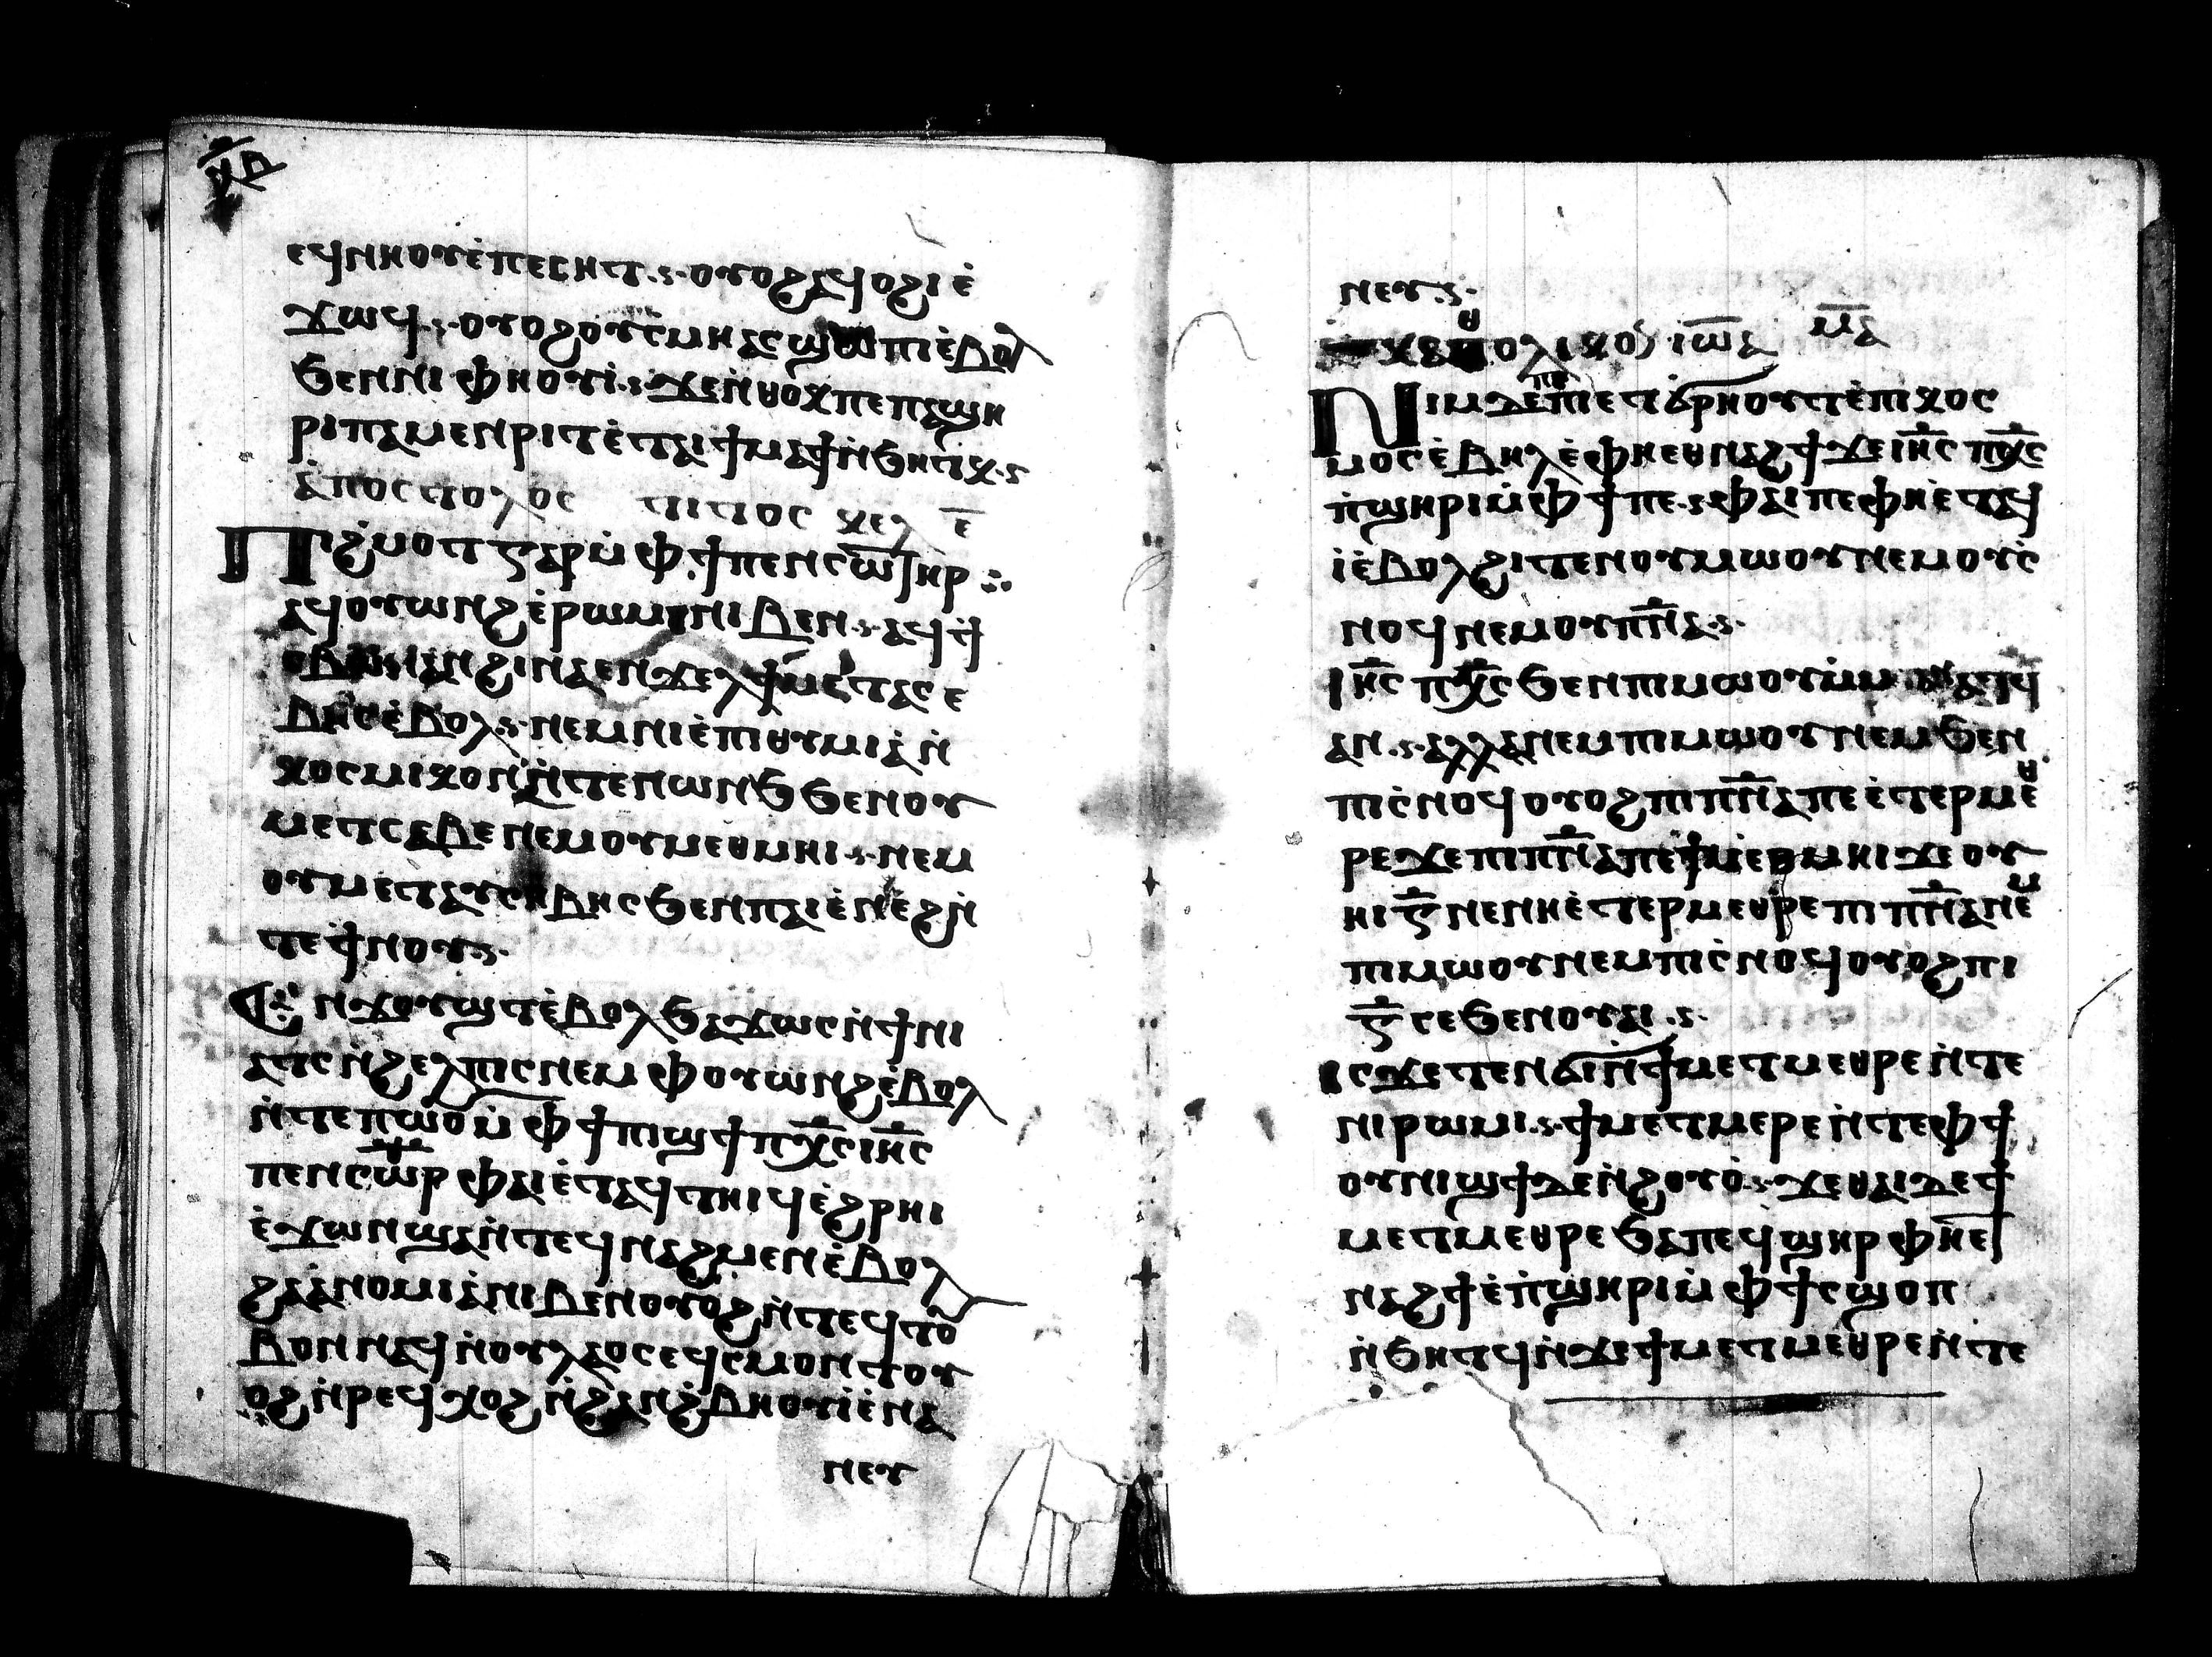 ⲛ̅ⲇ̅
ⲉϥⲛⲏⲟⲩⲉ̀ⲡⲉⲥⲏⲧ.ⲟⲩⲟϩⲁϥⲟϩⲓⲉ̀
ϫⲱϥ.ⲟⲩⲟϩⲟⲩⲥ̀ⲙⲏⲁⲥϣⲱⲡⲓⲉ̀ⲃⲟⲗ
ϧⲉⲛⲛⲓⲫⲏⲟⲩⲓ̀.ϫⲉⲛ̀ⲑⲟⲕⲡⲉⲡⲁϣⲏ
ⲣⲓⲡⲁⲙⲉⲛⲣⲓⲧⲉ̀ⲧⲁⲓϯⲙⲁϯⲛ̀ϧⲏⲧⲕ.
ⲁ̀ⲡⲟⲥⲧⲟⲗⲟⲥ ⲧⲓⲧⲟⲥ ⲕⲉⲗ ⲉ̅
Ⲡⲓϩ̀ⲙⲟⲧⲅⲁⲣⲙ̀ⲫϯⲡⲉⲛⲥⲱ̅ⲧⲏⲣ
ⲁϥⲟⲩⲱⲛϩⲉ̀ⲣⲱⲙⲓⲛⲓⲃⲉⲛ.ⲁϥϯ
ⲥⲃⲱⲛⲁⲛϩⲓⲛⲁⲉⲛϫⲉⲗϯⲙⲉⲧⲁⲥⲉ
ⲃⲏⲥⲉ̀ⲃⲟⲗ.ⲛⲉⲙⲛⲓⲉ̀ⲡⲓⲑⲩⲙⲓⲁ̀ⲛ̀
ⲕⲟⲥⲙⲓⲕⲟⲛⲛ̀ⲧⲉⲛⲱⲛϧϧⲉⲛⲟⲩ
ⲙⲉⲧⲥⲁⲃⲉⲛⲉⲙⲟⲩⲙⲉⲑⲙⲏⲓ.ⲛⲉⲙ
ⲟⲩⲙⲉⲧⲉⲩⲥⲉⲃⲏⲥϧⲉⲛⲡⲁⲓⲉ̀ⲛⲉ̀ϩⲛ̀
ⲧⲉϯⲛⲟⲩ.
Ⲉⲛϫⲟⲩϣⲧⲉ̀ⲃⲟⲗϧⲁϫⲱⲥⲛ̀ϯⲛⲓ
ⲁⲧⲥⲛ̀ϩⲉⲗⲡⲓⲥⲛⲉⲙⲫⲟⲩⲱⲛϩⲉ̀ⲃⲟⲗ
ⲛ̀ⲧⲉⲡⲱⲟⲩⲙ̀ⲫϯⲡⲓϣϯⲡⲭ̅ⲥⲓⲏ̅ⲥ
ⲡⲉⲛⲥⲱ̅ⲣⲫⲁⲓⲉ̀ⲧⲁϥⲧⲏⲓϥⲉ̀ϩⲣⲏⲓ
ⲉ̀ϫⲱⲛϣⲁⲛ̀ⲧⲉϥⲛⲁϩⲙⲉⲛⲉ̀ⲃⲟⲗ
ϩⲁⲁ̀ⲛⲟⲙⲓⲁ̀ⲛⲓⲃⲉⲛⲟⲩⲟϩⲛ̀ⲧⲉϥⲧⲟⲩ
ⲃⲟⲛⲛⲁϥⲛ̀ⲟⲩⲗⲁⲟⲥⲉϥⲥⲙⲟⲛⲧⲟⲩ
ⲟϩⲛ̀ⲣⲉϥⲭⲟϩⲛ̀ϩⲁⲛϩ̀ⲃⲏⲟⲩⲓ̀ⲉ̀ⲛⲁ
ⲛⲉⲩ
ⲛⲉⲩ.
ⲕⲁⲑⲟⲗⲓⲕⲟⲛ ⲓⲱ̅ⲁ ⲙ̅ⲁ
Ⲛⲓⲙⲇⲉⲡⲉⲡⲉⲧϭⲣⲏⲟⲩⲧⲉ̀ⲡⲓⲕⲟⲥ
ⲙⲟⲥⲉ̀ⲃⲏⲗⲉ̀ⲫⲏⲉⲑⲛⲁϩϯϫⲉⲓⲏ̅ⲥⲡⲭ̅ⲥ
ⲡ̀ϣⲏⲣⲓⲙ̀ⲫϯⲡⲉ.ⲫⲁⲓⲡⲉⲫⲏⲉ̀ⲧⲁϥ
ⲓ̀ⲉ̀ⲃⲟⲗϩⲓⲧⲉⲛⲟⲩⲙⲱⲟⲩⲛⲉⲙⲟⲩⲥ̀
ⲛⲟϥⲛⲉⲙⲟⲩⲡⲛ̅ⲁ.
Ⲓⲏ̅ⲥ ⲡⲭ̅ⲥϧⲉⲛⲡⲓⲙⲱⲟⲩⲙ̀ⲙⲁⲩⲁⲧϥ
ⲁⲛ.ⲁⲗⲗⲁⲛⲉⲙⲡⲓⲙⲱⲟⲩⲛⲉⲙϧⲉⲛ
ⲡⲓⲥ̀ⲛⲟϥⲟⲩⲟϩⲡⲓⲡⲛ̅ⲁⲡⲉⲉ̀ⲧⲉⲣⲙⲉⲑ
ⲣⲉϫⲉⲡⲓⲡⲛ̅ⲁⲡⲉϯⲙⲉⲑⲙⲏⲓϫⲉⲟⲩ
ⲏⲓⲅ̅ⲛⲉⲛⲏⲉ̀ⲧⲉⲣⲙⲉⲑⲣⲉⲡⲓⲡⲛ̅ⲁⲛⲉⲙ
ⲡⲓⲙⲱⲟⲩⲛⲉⲙⲡⲓⲥ̀ⲛⲟϥⲟⲩⲟϩⲡⲓ
ⲅ̅ⲥⲉϧⲉⲛⲟⲩⲁⲓ.
Ⲓⲥϫⲉⲧⲉⲛϭⲓⲛ̀ϯⲙⲉⲧⲙⲉⲑⲣⲉⲛ̀ⲧⲉ
ⲛⲓⲣⲱⲙⲓ.ϯⲙⲉⲧⲙⲉⲣⲉⲛ̀ⲧⲉⲫϯ
ⲟⲩⲛⲓϣϯⲇⲉⲛ̀ϩⲟⲩⲟ̀.ϫⲉⲑⲁⲓⲇⲉϯ
ⲙⲉⲧⲙⲉⲑⲣⲉϧⲁⲡⲉϥϣⲏⲣⲫⲏⲉⲧ
ⲛⲁϩϯⲉ̀ⲡ̀ϣⲏⲣⲓⲙ̀ⲫϯⲥϣⲟⲡ
ⲛ̀ϧⲏⲧϥⲛ̀ϫⲉϯⲙⲉⲧⲙⲉⲑⲣⲉⲛ̀ⲧⲉ